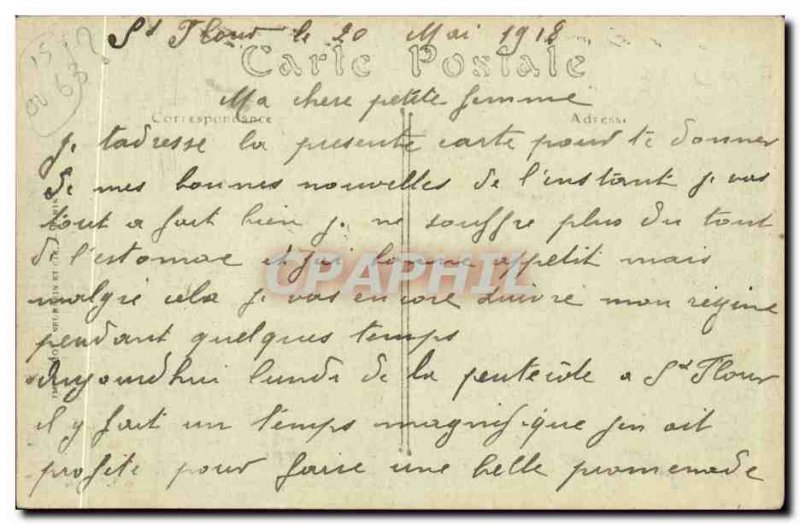 St Flour le 20 Mai 1918
Carte Postale
Ma chere petite femme
Correspondance Adresse
Je tadresse la presente carte pour te donner
de mes bonnes nouvelles de l'instant je vas
tout a fait bien je ne souffre plus du tout
de l'estomac et jai bonne appetit mais
malgre cela je vas encore suivre mon regime
pendant quelques temps
Aujourdhui lundi de la pentecote a St Flour
il y fait un temps magnifique jen ait
profite pour faire une belle promenade
CPAPHIL
15
63